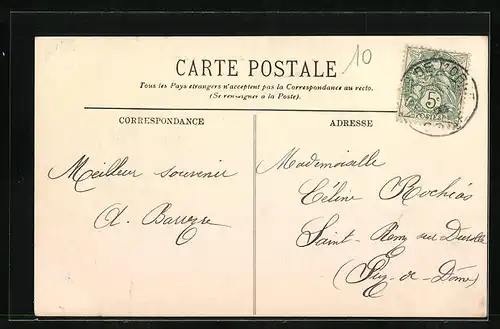 10
CARTE POSTALE
Tous les Pays étrangers n'acceptent pas la Correspondance au recto.
(Se renseigner à la Poste).
CORRESPONDANCE
ADRESSE
5c
POSTES
Meilleur souvenir
A. Barrere
Mademoiselle
Céline
Saint-Remy sur Durolle
(Puy-de-Dôme)